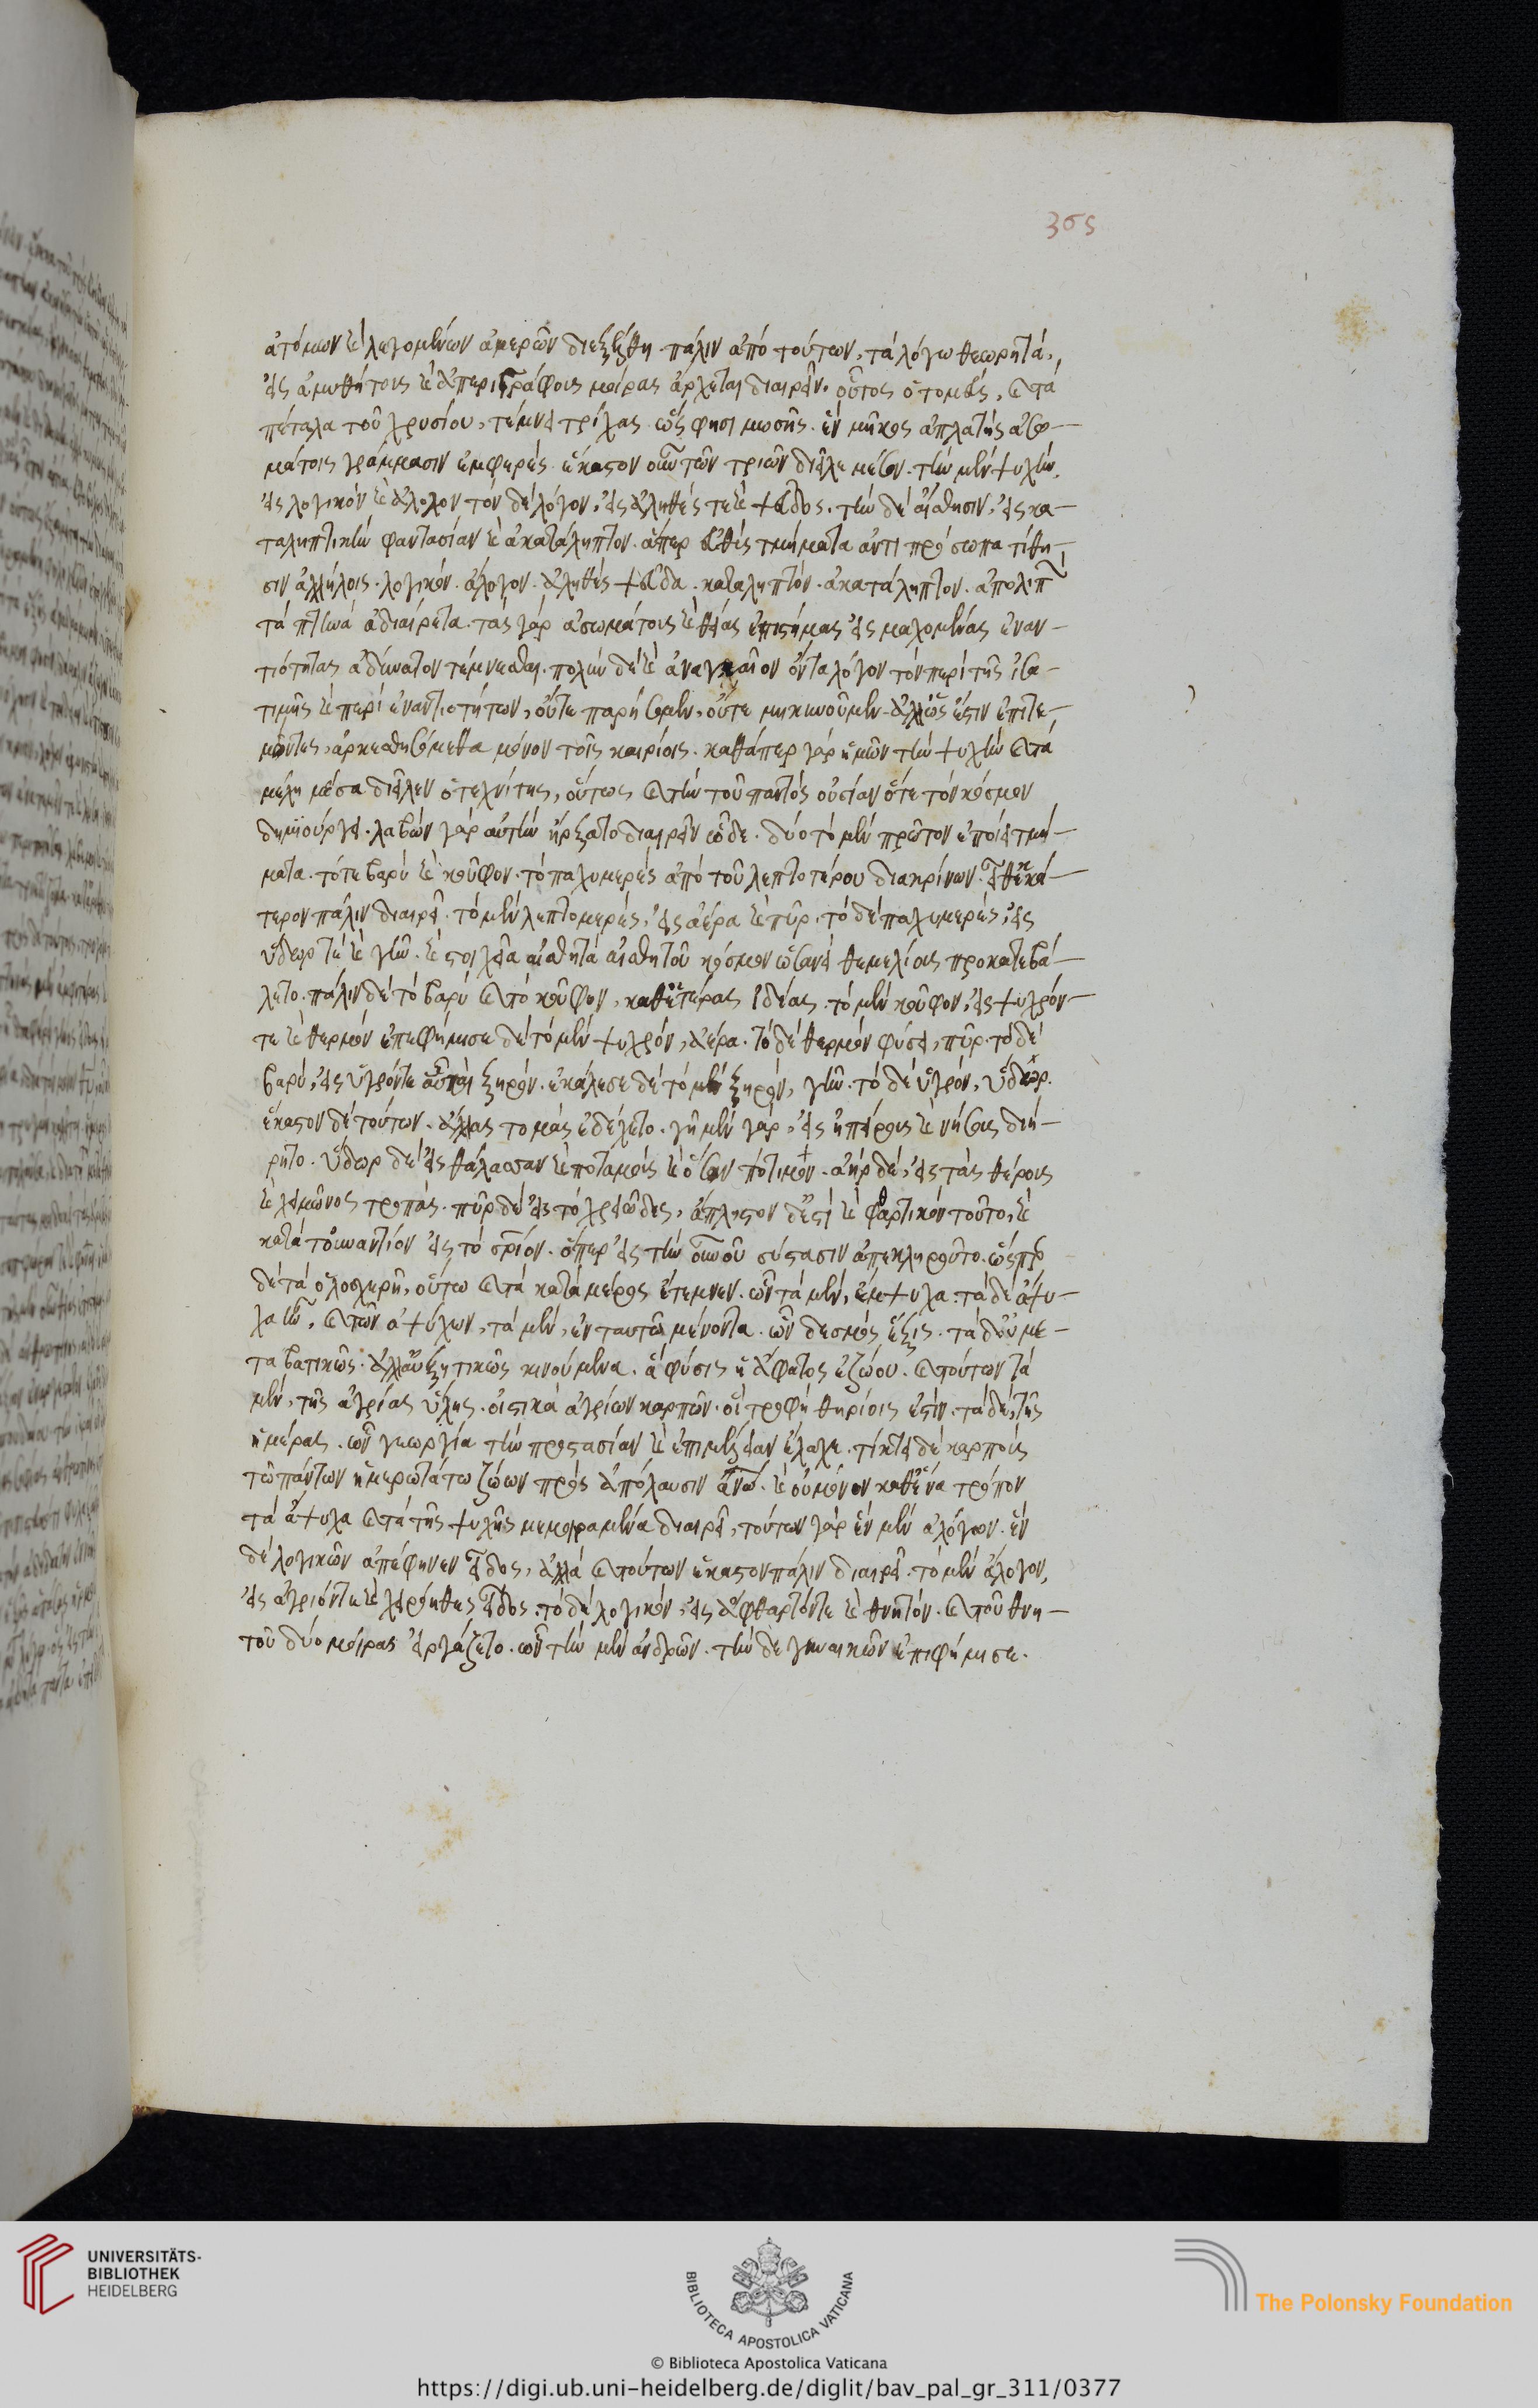 365
ἀτόμων καὶ λεγομένων ἀμερῶν διεξέλθη. πάλιν ἀπὸ τούτων, τὰ λόγω θεωρητὰ,
εἰς ἀμυθήτους καὶ ἀπεριγράφους μοίρας ἄρχεται διαιρεῖν. οὗτος ὁ τομεύς, καὶ τὰ
πέταλα τοῦ χρυσίου, τέμνει τρίχας ὥς φησι μωσῆς. ἓν μῆκος ἀπλατὴς ἀσω-
μάτοις γράμμασιν ἐμφερές. ἕκαστον οὖν τῶν τριῶν διεῖλε μέσον. τὴν μὲν ψυχὴν,
εἰς λογικὸν καὶ ἄλογον τὸν δὲ λόγον, εἰς ἀληθές τε καὶ ψεῦδος. τὴν δὲ αἴσθησιν, εἰς κα-
ταληπτικὴν φαντασίαν καὶ ἀκατάληπτον. ἅπερ εὐθὺς τμήματα ἀντιπρόσωπα τίθη-
σιν ἀλλήλοις. λογικὸν. ἄλογον. ἀληθὲς ψεῦδος. καταληπτὸν. ἀκατάληπτον. ἀπολιπ
τὰ πτηνὰ ἀδιαίρετα. τὰς γὰρ ἀσωμάτους καὶ θείας ἐπιστήμας εἰς μαχομένας ἐναν-
τιότητας ἀδύνατον τέμνεσθαι. πολὺν δὲ καὶ ἀναγκαῖον ὄντα λόγον τὸν περὶ τῆς εἰς ἴσα
τομῆς καὶ περὶ ἐναντιοτήτων, οὔτε παρήσομεν, οὔτε μηκυνοῦμεν. ἀλλ' ὡς ἔστιν ἐπιτε-
μόντες, ἀρκεσθησόμεθα μόνον τοῖς καιρίοις. καθάπερ γὰρ ἡμῶν τὴν ψυχὴν καὶ τὰ
μέλη μέσα διεῖλεν ὁ τεχνίτης, οὕτως καὶ τὴν τοῦ παντὸς οὐσίαν ὅτε τὸν κόσμον
δημιούργει. λαβὼν γὰρ αὐτὴν ἤρξατο διαιρεῖν ὧδε. δύο τὸ μὲν πρῶτον ἐποίει τμή-
ματα. τό τε βαρὺ καὶ κοῦφον. τὸ παχυμερὲς ἀπὸ τοῦ λεπτοτέρου διακρίνων. εἶθ' ἑκά-
τερον πάλιν διαιρεῖ. τὸ μὲν λεπτομερὲς, εἰς ἀέρα καὶ πῦρ. τὸ δὲ παχυμερὲς, εἰς
ὕδωρ τε καὶ γῆν. καὶ στοιχεῖα αἰσθητὰ αἰσθητοῦ κόσμου ὡσανεὶ θεμελίους προκατεβά-
λετο. πάλιν δὲ τὸ βαρὺ καὶ τὸ κοῦφον, καθ' ἑτέρας ἰδέας. τὸ μὲν κοῦφον, εἰς ψυχρόν
τε καὶ θερμὸν ἐπεφήμισε δὲ τὸ μὲν ψυχρὸν, ἀέρα. τὸ δὲ θερμὸν φύσει, πῦρ. τὸ δὲ
βαρὺ, εἰς ὑγρόν τε αὖ καὶ ξηρὸν. ἐκάλεσε δὲ τὸ μὲν ξηρὸν, γῆν. τὸ δὲ ὑγρὸν, ὕδωρ.
ἕκαστον δὲ τούτων. ἄλλας τομὰς ἐδέχετο. γῆ μὲν γὰρ, εἰς ἠπείρους καὶ νήσους διή-
ρητο. ὕδωρ δὲ εἰς θάλασσαν καὶ ποταμοὺς καὶ ὅσον πότιμον. ἀὴρ δὲ, εἰς τὰς θέρους
καὶ χειμῶνος τροπάς. πῦρ δὲ εἰς τὸ χρειῶδες, ἄπληστον δ' ἐστὶ καὶ φθαρτικὸν τοῦτο, καὶ
κατὰ τοὐναντίον εἰς τὸ σωτήριον. ὅπερ εἰς τὴν οὐρανοῦ σύστασιν ἀπεκληροῦτο. ὥσπερ
δὲ τὰ ὁλοσχερῆ, οὕτω καὶ τὰ κατὰ μέρος ἔτεμνεν. ὧν τὰ μὲν, ἔμψυχα. τὰ δὲ ἄψυ-
χα ἦν. καὶ τῶν ἀψύχων, τὰ μὲν, ἐν ταυτῶ μένοντα. ὧν δεσμὸς ἕξις. τὰ δ' οὐ με-
ταβατικῶς. ἀλλ' αὐξητικῶς κινούμενα. ἃ φύσις ἡ ἀφάντος ἐζώου. καὶ τούτων τὰ
μὲν, τῆς ἀγρίας ὕλης. οἰστικὰ ἀγρίων καρπῶν. οἳ τροφὴ θηρίοις εἰσίν. τὰ δὲ, τῆς
ἡμέρας. ὧν γεωργία τὴν προστασίαν καὶ ἐπιμέλειαν ἔλαχε. τίκτει δὲ καρποὺς
τῶ πάντων ἡμερωτάτω ζώων πρὸς ἀπόλαυσιν ἀνθρώπω. καὶ οὐ μόνον καθ' ἕνα τρόπον
τὰ ἄψυχα καὶ τὰ τῆς ψυχῆς μεμοιραμένα διαιρεῖ, τούτων γὰρ ἓν μὲν ἀλόγων. ἓν
δὲ λογικῶν ἀπέφηνεν εἶδος, ἀλλὰ καὶ τούτων ἕκαστον πάλιν διαιρεῖ. τὸ μὲν ἄλογον,
εἰς ἀγριόν τε καὶ χειρόηθες εἶδος. τὸ δὲ λογικὸν, εἰς ἄφθαρτόν τε καὶ θνητὸν. καὶ τοῦ θνη-
τοῦ δύο μοίρας εἰργάζετο. ὧν τὴν μὲν ἀνδρῶν. τὴν δὲ γυναικῶν ἐπεφήμισε.
UNIVERSITÄTS-
BIBLIOTHEK
HEIDELBERG
BIBLIOTECA APOSTOLICA VATICANA
The Polonsky Foundation
© Biblioteca Apostolica Vaticana
https://digi.ub.uni-heidelberg.de/diglit/bav_pal_gr_311/0377